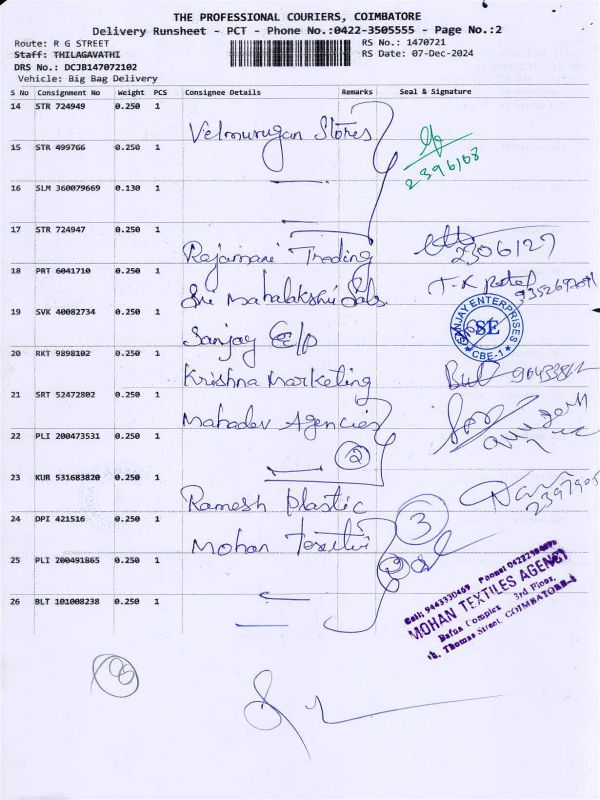 THE PROFESSIONAL COURIERS, COIMBATORE
Delivery Runsheet - PCT - Phone No.:0422-3505555 - Page No.:2
Route: R G STREET
RS No.: 1470721
Staff: THILAGAVATHI
RS Date: 07-Dec-2024
DRS No.: DCJB147072102
Vehicle: Big Bag Delivery
S No Consignment No Weight PCS Consignee Details Remarks Seal & Signature
14 STR 724949 0.250 1 Velmurugan Stores
15 STR 499766 0.250 1
2396108
16 SLM 360079669 0.130 1
17 STR 724947 0.250 1 Rajamani Trading
2306127
18 PRT 6041710 0.250 1 Sri Mahalakshmi Sales
T-K
19 SVK 40082734 0.250 1 Sanjay
SANJAY ENTERPRISES
SE
CBE-1
20 RKT 9898102 0.250 1 Krishna Marketing
21 SRT 52472802 0.250 1 Mahadev Agencies
22 PLI 200473531 0.250 1 2
23 KUR 531683820 0.250 1 Ramesh Plastic
24 DPI 421516 0.250 1 Mohan
3
25 PLI 200491865 0.250 1
26 BLT 101008238 0.250 1
Cell: 9443330469
MOHAN TEXTILES AGENCY
Bafna Complex 3rd Floor,
Thomas Street, COIMBATORE-1